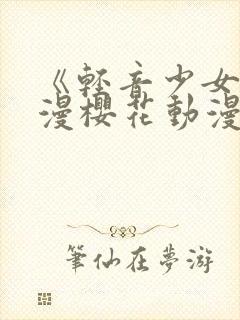 《輕音少女
漫櫻花動漫
筆仙在夢游